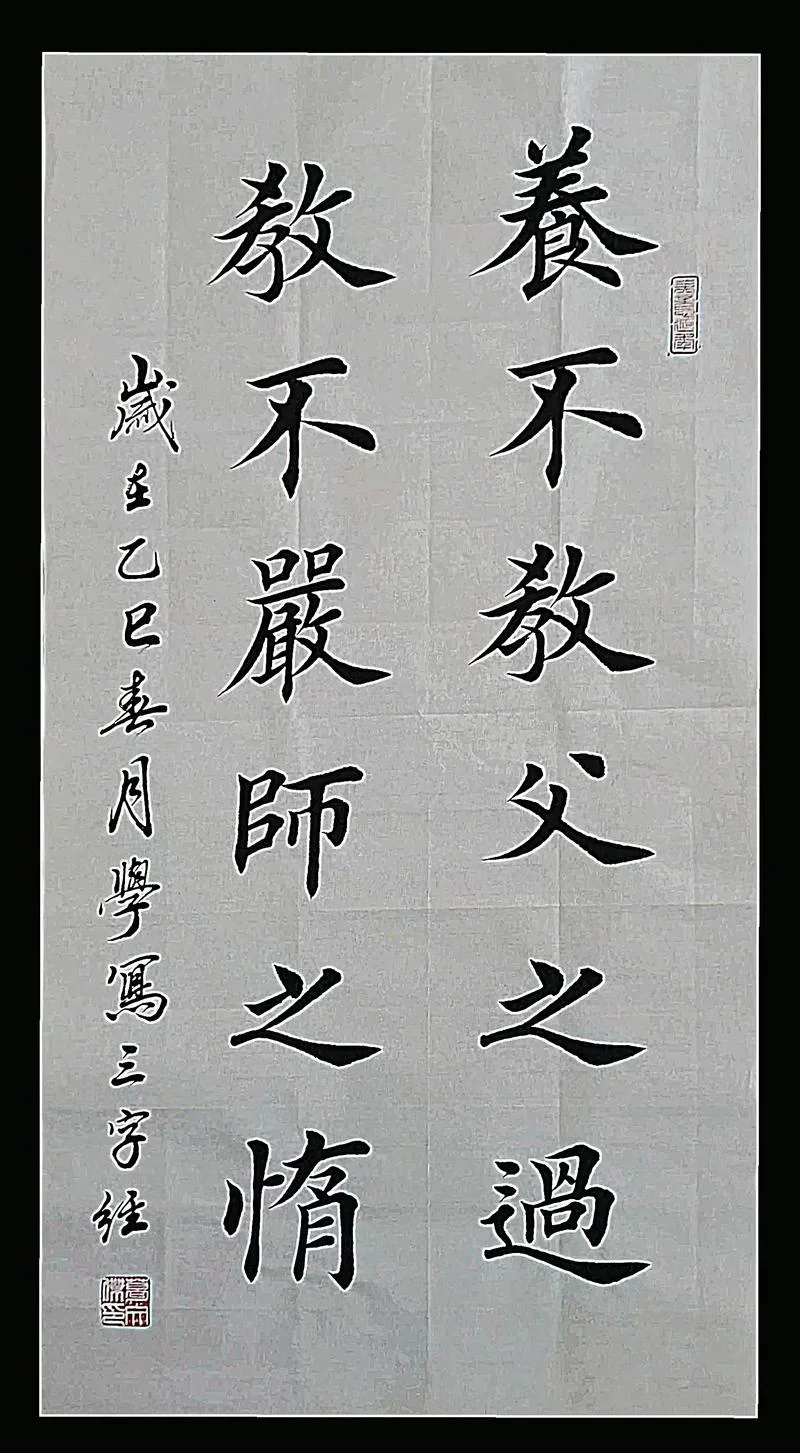 養不教父之過
教不嚴師之惰
歲在乙巳春月學寫三字經